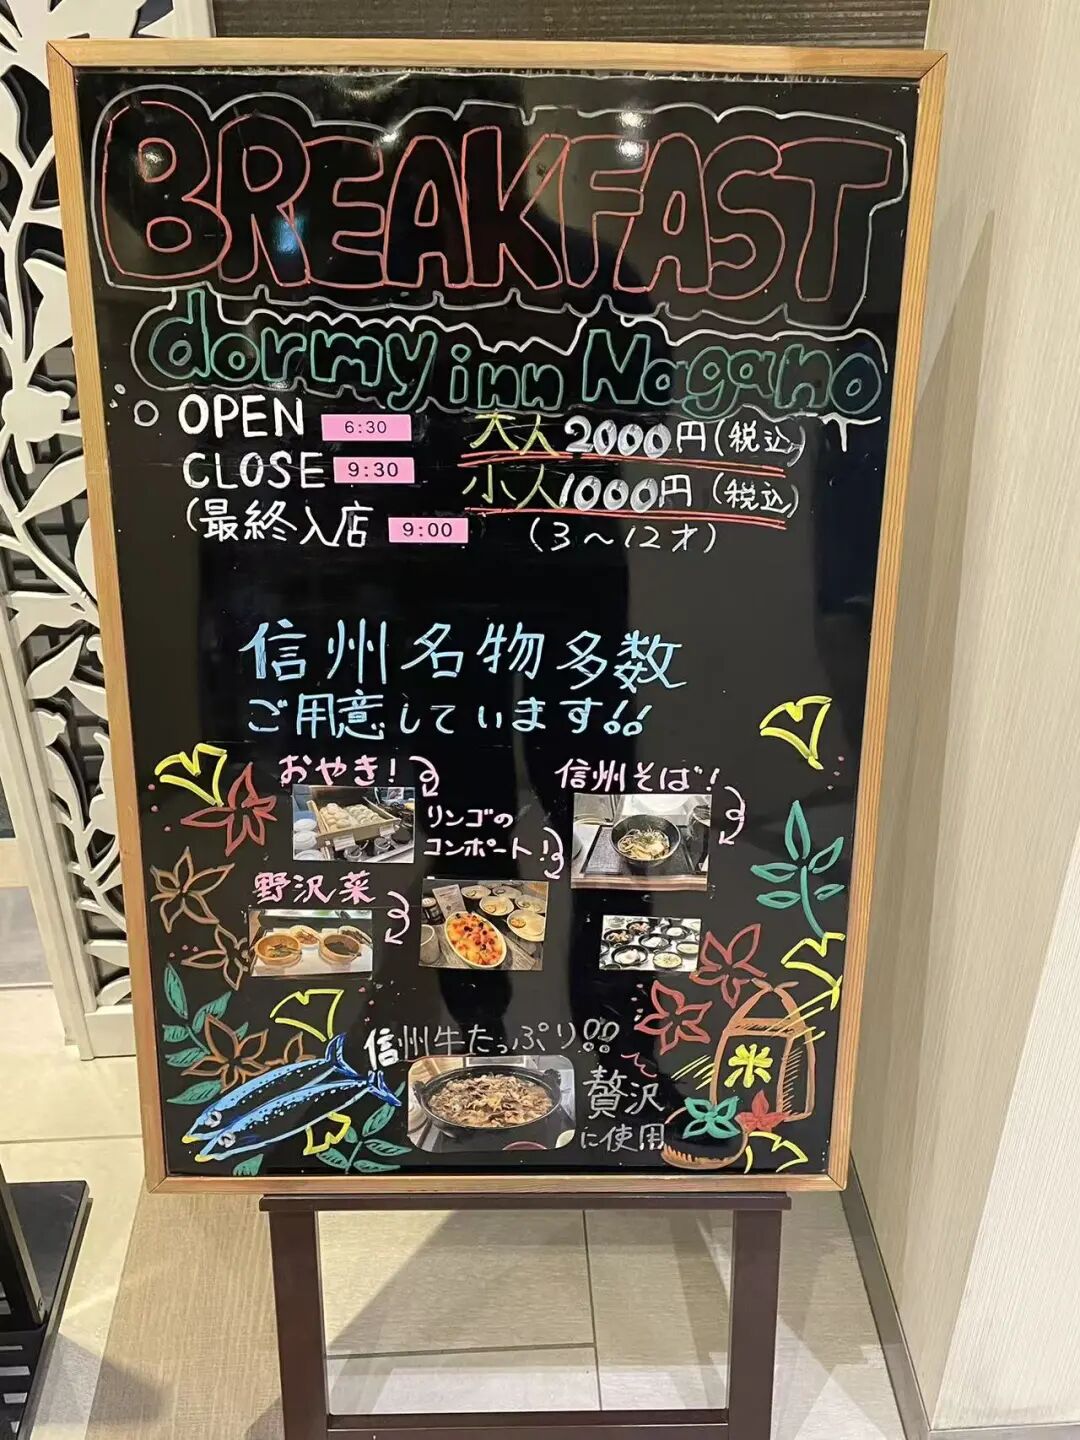 BREAKFAST
dormy inn Nagano
OPEN 6:30 大人2000円(税込)
CLOSE 9:30 小人1000円(税込)
(最終入店 9:00 (3～12才)
信州名物多数
ご用意しています!!
おやき! 信州そば!
リンゴの
コンポート!
野沢菜
信州牛たっぷり!!
贅沢
に使用
米